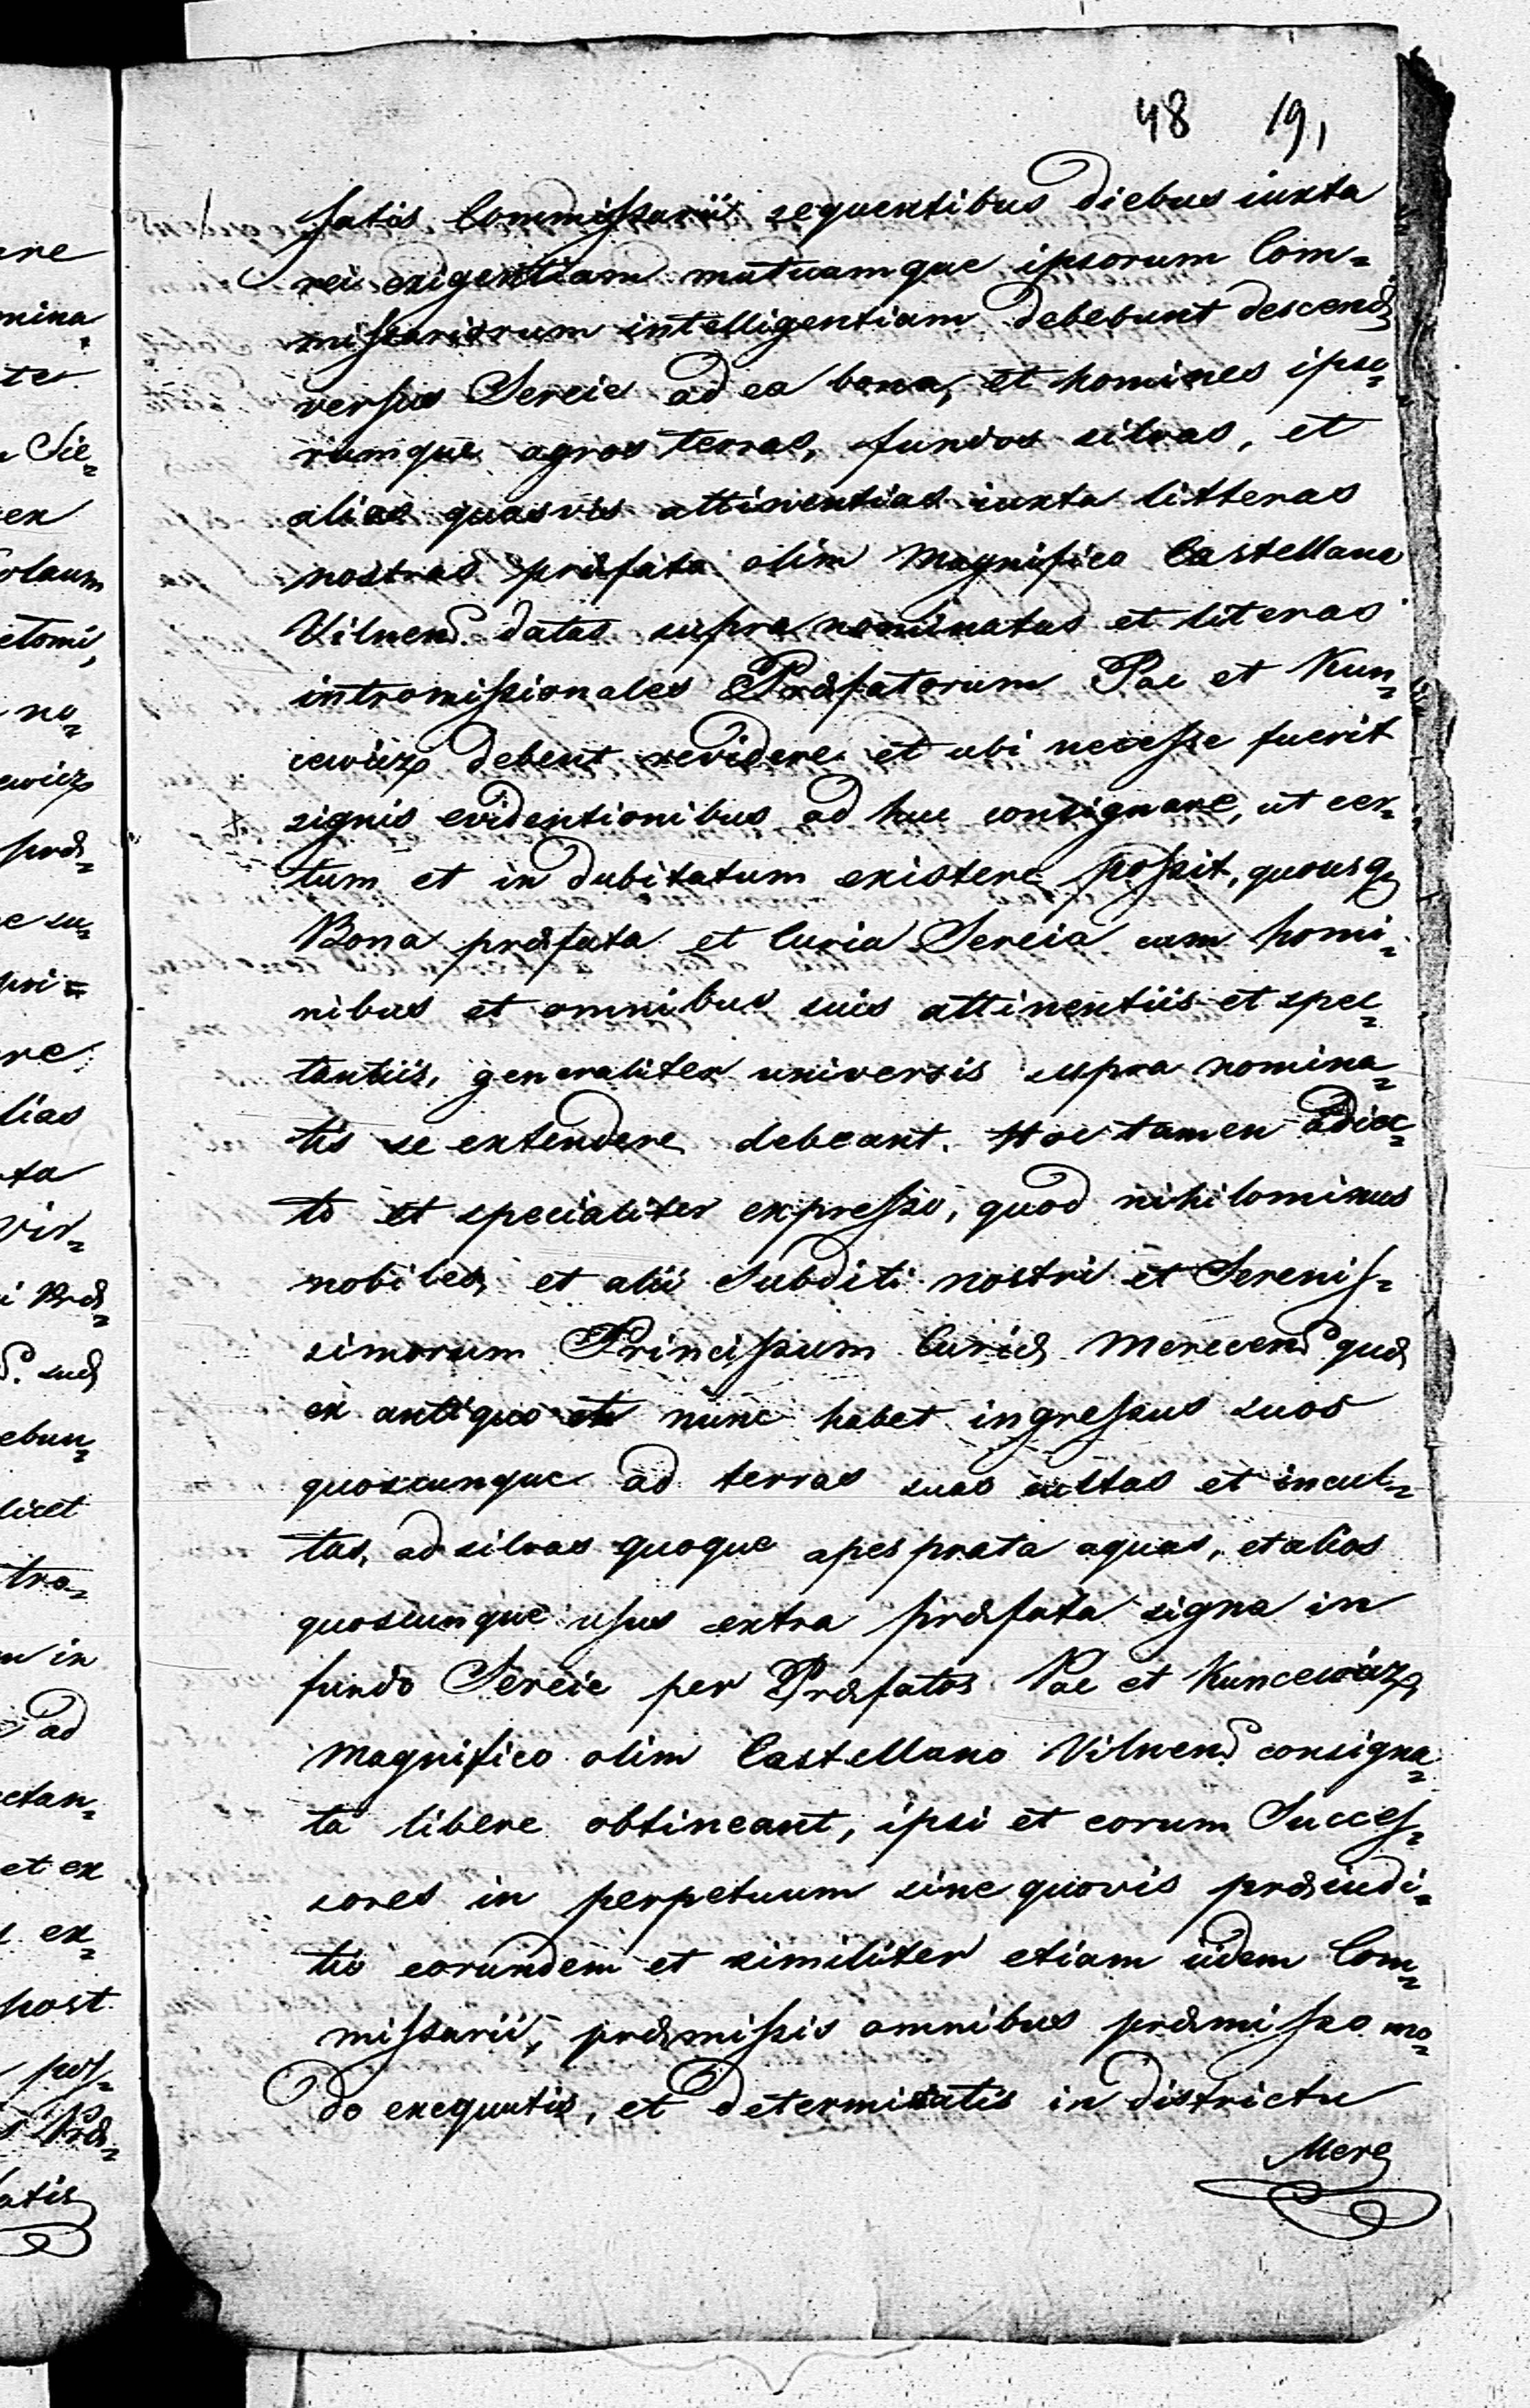 48 19,
fatis Commissarii sequentibus diebus iuxta
rei exigentiam mutuamque ipsorum Com=
missariorum intelligentiam debebunt descend
versus Sereie ad ea bona, et homines ipso=
rumque agros terras, fundos silvas, et
alias quasvis attinentias iuxta litteras
nostras præfata olim Magnifico Castellano
Vilnen. datas supra nominatas et literas
intromissionales Præfatorum Pac et Kun=
cewicz debent revidere et ubi necesse fuerit
signis evidentionibus ad huc consignare, ut cer=
tum et in dubitatum existere possit, quousq
Bona præfata et Curia Sereia cum homi=
nibus et omnibus suis attinentiis et spec=
tantiis, generaliter universis supra nomina=
tis se extendere debeant. Hoc tamen adiec=
to et specialiter expresso, quod nihilominus
nobiles, et alii Subditi nostri et Serenis=
simorum Principum Curiæ Merecen. quæ
ex antiquo et nunc habet ingressus suos
quoscunque ad terras suas cultas et incul=
tas, ad silvas quoque apes prata aquas, et alios
quoscunque usus extra præfata signa in
fundo Sereie per Præfatos Pac et Kuncewicz
Magnifico olim Castellano Vilnen. consigna=
ta libere obtineant, ipsi et eorum Succes=
sores in perpetuum sine quovis præiudi=
tio eorundem et similiter etiam iidem Com=
missarii, præmissis omnibus præmisso mo=
do exequutis, et determinatis in districtu
Mere
are
mina=
te
Sie=
ex
olaum
etomi,
no=
ewicz
præ=
e su=
pri=
re
lias
ta
Vir=
i Præ=
suæ
ebun=
licet
tra=
in
ad
ctan=
et ex
ex=
post
pos=
Præ=
fatis